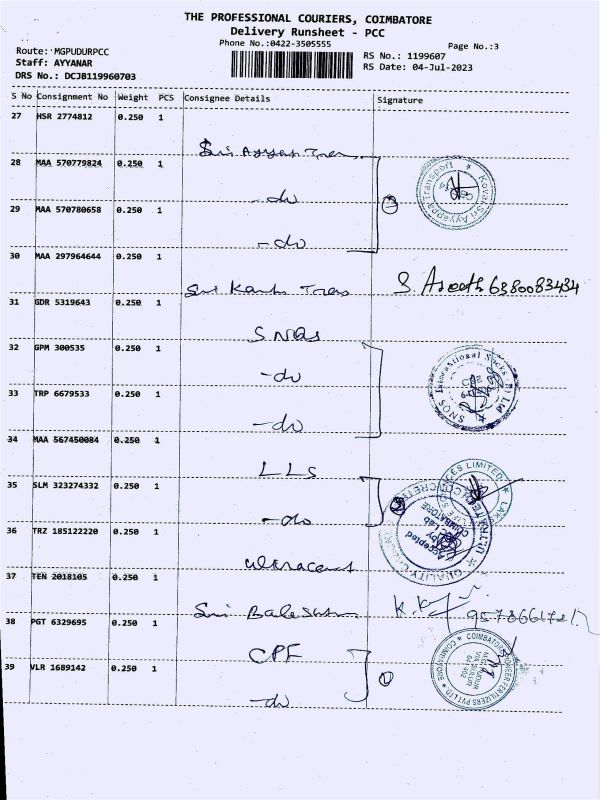 THE PROFESSIONAL COURIERS, COIMBATORE
Delivery Runsheet - PCC
Phone No.:0422-3505555
Page No.:3
Route: MGPUDURPCC
RS No.: 1199607
Staff: AYYANAR
RS Date: 04-Jul-2023
DRS No.: DCJB119960703
S No Consignment No Weight PCS Consignee Details Signature
27 HSR 2774812 0.250 1
Sri Ayyappa Trans
28 MAA 570779824 0.250 1
-do
29 MAA 570780658 0.250 1
-do
30 MAA 297964644 0.250 1
Sri Trans
6380083434
31 GDR 5319643 0.250 1
SNQS
32 GPM 300535 0.250 1
-do
33 TRP 6679533 0.250 1
-do
34 MAA 567450084 0.250 1
LLS
35 SLM 323274332 0.250 1
-do
36 TRZ 185122220 0.250 1
Ultracemt
37 TEN 2018105 0.250 1
Sri
38 PGT 6329695 0.250 1
CPF
39 VLR 1689142 0.250 1
-do
Kovai Sri Ayyappa Transport
SNQS International Socks (P) Ltd
LIMITED
Accepted by
QC Lab
COIMBATORE
COIMBATORE PIONEER FERTILIZERS PVT LTD